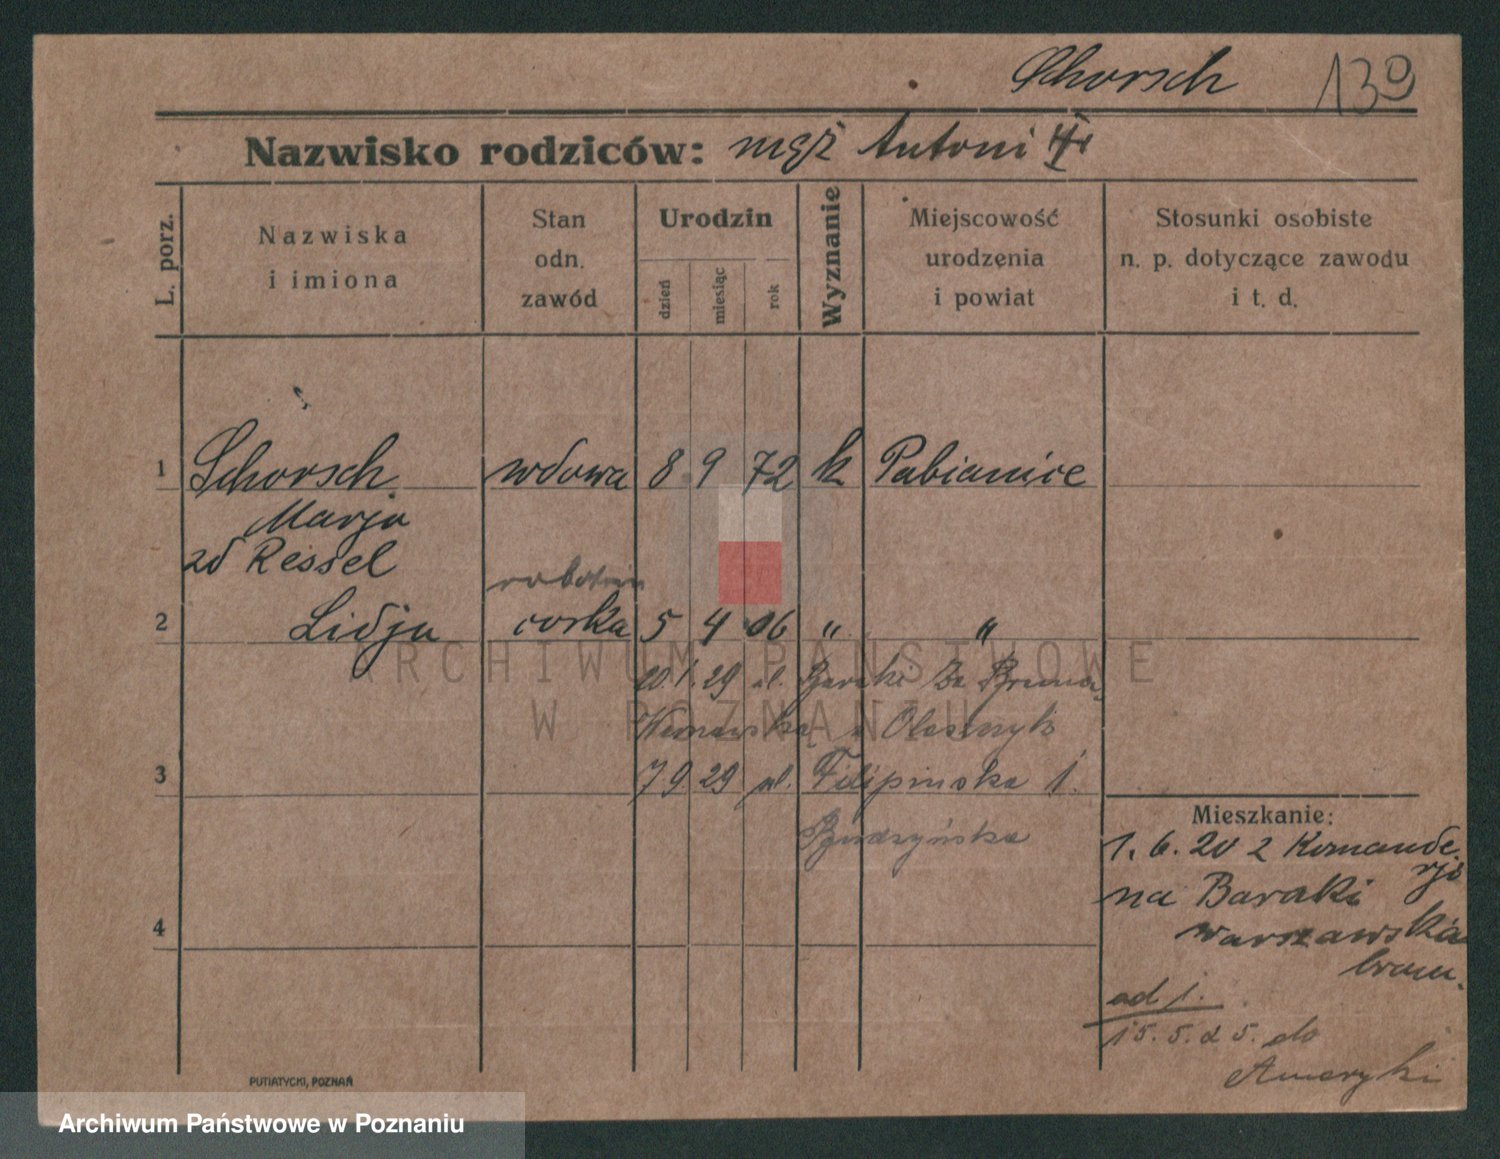 Schorsch 139
Nazwisko rodziców: mąż Antoni
L. porz.
Nazwiska
i imiona
Stan
odn.
zawód
Urodzin
dzień
miesiąc
rok
Wyznanie
Miejscowość
urodzenia
i powiat
Stosunki osobiste
n. p. dotyczące zawodu
i t. d.
1 Schorsch wdowa 8 9 72 k Pabianice
Marja
zd Ressel
robotnica
2 Lidja corka 5 4 06 " "
ARCHIWUM PAŃSTWOWE
W POZNANIU
1. 29 ul. Baraki za Bramą
3 7 9. 29 ul. Filipińska 1.
Budzyńska
Mieszkanie:
1. 6. 20 z Komande
rji
na Baraki
warszawska
bram.
4
ad 1.
15. 5. 25. do
Ameryki
PUTIATYCKI, POZNAŃ
Archiwum Państwowe w Poznaniu